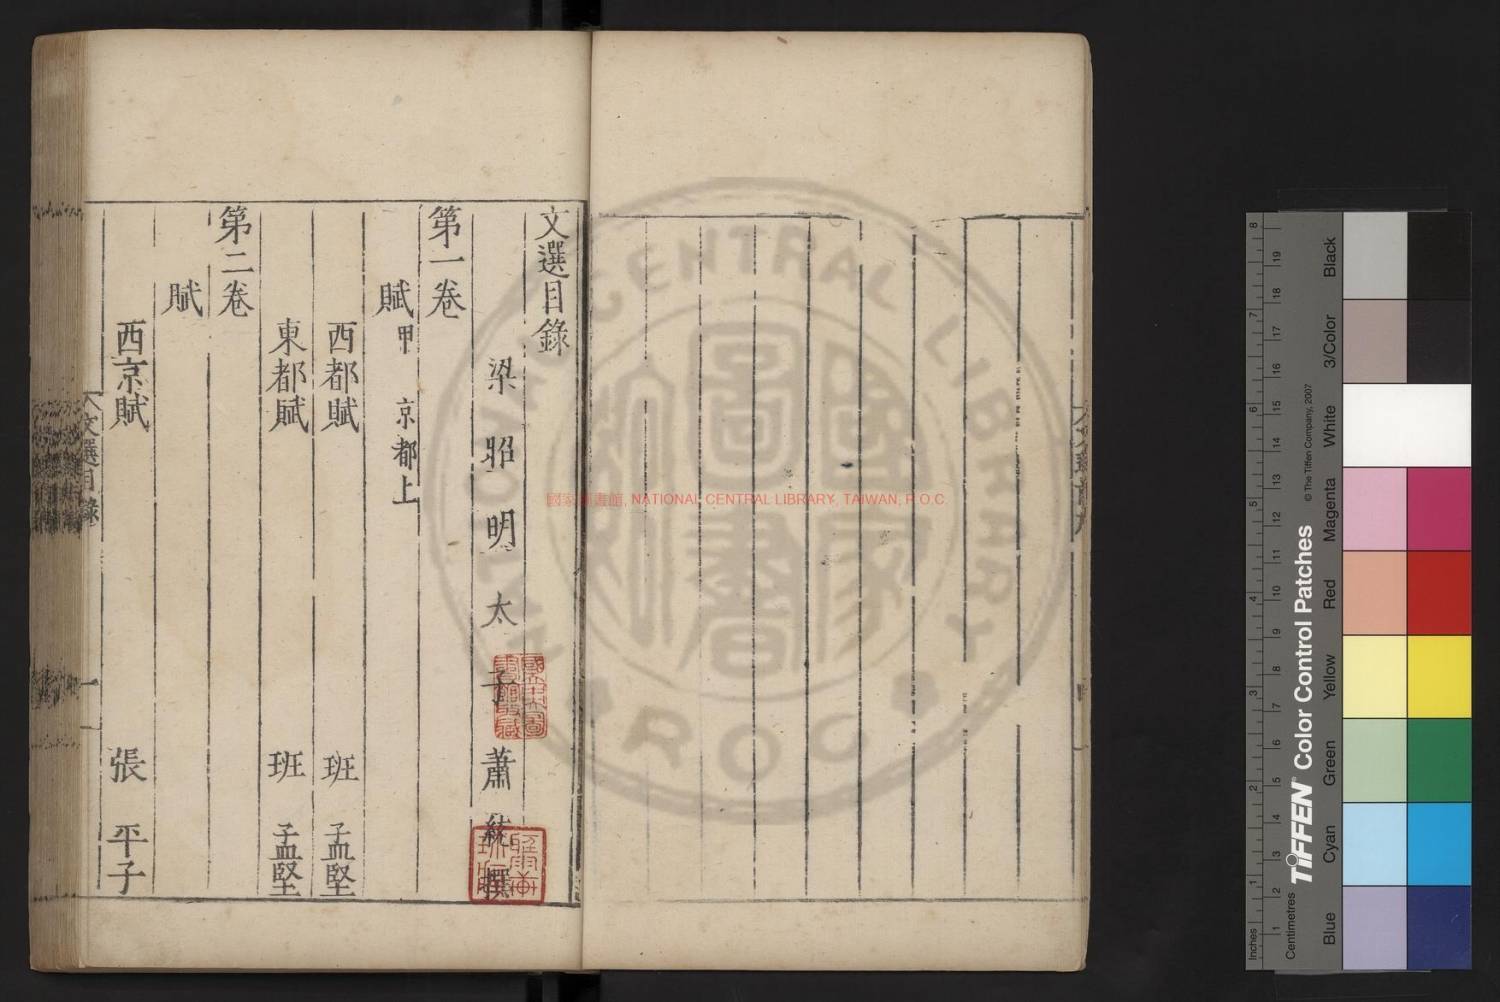 文選目錄
梁昭明太子蕭統撰
第一卷
賦甲 京都上
西都賦 班孟堅
東都賦 班孟堅
第二卷
賦
西京賦 張平子
文選目錄 一
國家圖書館, NATIONAL CENTRAL LIBRARY, TAIWAN, R.O.C.
NATIONAL CENTRAL LIBRARY
R.O.C
國家圖書館
國立中央圖書館收藏
Inches
1 2 3 4 5 6 7 8
Centimetres
1 2 3 4 5 6 7 8 9 10 11 12 13 14 15 16 17 18 19
TIFFEN® Color Control Patches
© The Tiffen Company, 2007
Blue
Cyan
Green
Yellow
Red
Magenta
White
3/Color
Black